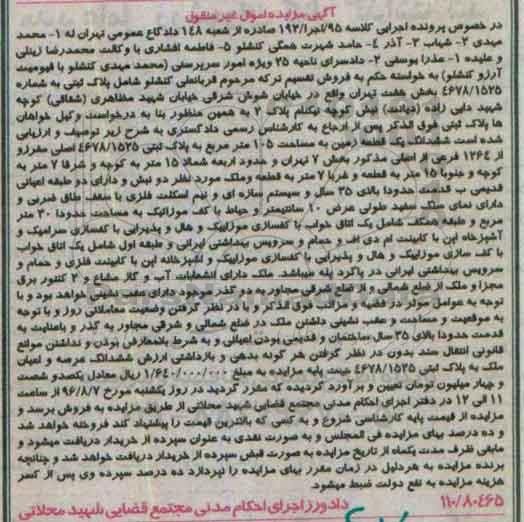 آگهی مزایده اموال غیر منقول
در خصوص پرونده اجرایی کلاسه ۹۵/اجرا/۱۹۲ صادره از شعبه ۱۴۸ دادگاه عمومی تهران له ۱- محمد
مهدی ۲- شهاب ۳- آذر ۴- حامد شهرت همگی کنشلو ۵- فاطمه افشاری با وکالت محمدرضا زینلی
و علیه ۱- عذرا یوسفی ۲- دادسرای ناحیه ۲۵ ویژه امور سرپرستی (محمد مهدی کنشلو با قیمومیت
آرزو کنشلو) به خواسته حکم به فروش تقسیم ترکه مرحوم قربانعلی کنشلو شامل پلاک ثبتی به شماره
۴۶۷۸/۱۵۲۵ بخش هفت تهران واقع در خیابان شوش شرقی خیابان شهید مظاهری (شقاقی) کوچه
شهید دایی زاده (دیانت) نبش کوچه نیکنام پلاک ۲ به همین منظور بنا به درخواست وکیل خواهان
ها پلاک ثبتی فوق الذکر پس از ارجاع به کارشناس رسمی دادگستری به شرح زیر توصیف و ارزیابی
شده است ششدانگ یک قطعه زمین به مساحت ۱۰۵ متر مربع به پلاک ثبتی ۴۶۷۸/۱۵۲۵ اصلی مفرزو
از ۱۲۶۴ فرعی از اصلی مذکور بخش ۷ تهران و حدود اربعه شمالا ۱۵ متر به کوچه و شرقا ۷ متر به
کوچه و جنوبا ۱۵ متر به قطعه و غربا ۷ متر به قطعه وملک مورد نظر دو نبش و دارای دو طبقه اعیانی
قدیمی ب قدمت حدودا بالای ۳۵ سال و سیستم سازه ای و نیم اسکلت فلزی با سقف طاق ضربی و
دارای نمای سنگ سفید طولی عرض ۲۰ سانتیمتر و حیاط با کف موزائیک به مساحت حدودا ۳۰ متر
مربع و طبقه همکف شامل یک اتاق خواب با کفسازی موزاییک و هال و پذیرایی با کفسازی سرامیک و
آشپزخانه اپن با کابینت ام دی اف و حمام و سرویس بهداشتی ایرانی و طبقه اول شامل یک اتاق خواب
با کف سازی موزاییک و هال و پذیرایی با کفسازی موزاییک و آشپزخانه اپن با کابینت فلزی و حمام و
سرویس بهداشتی ایرانی در پاگرد پله میباشد. ملک دارای انشعابات آب و گاز مشاع و ۲ کنتور برق
مجزا و ملک از ضلع شمالی و از ضلع شرقی مجاور به دو گذر موجود دارای عقب نشینی خواهد بود و با
توجه به عوامل موثر در قیمت و مراتب فوق الذکر و با در نظر گرفتن وضعیت معاملاتی روز و با توجه
به موقعیت و مساحت و عقب نشینی داشتن ملک در ضلع شمالی و شرقی مجاور به گذر و باعنایت به
قدمت حدودا بالای ۳۵ سال ساختمان و قدیمی بودن اعیانی و به شرط بلامعارض بودن و نداشتن موانع
قانونی انتقال سند بدون در نظر گرفتن هر گونه بدهی و بازداشتی ارزش ششدانگ عرصه و اعیان
ملک به پلاک ثبتی ۴۶۷۸/۱۵۲۵ جهت پایه مزایده به مبلغ ۱/۶۴۰/۰۰۰/۰۰۰ ریال معادل یکصدو شصت
و چهار میلیون تومان تعیین و برآورد گردیده که مقرر گردید در روز یکشنبه مورخ ۹۶/۸/۷ از ساعت
۱۱ الی ۱۲ در دفتر اجرای احکام مدنی مجتمع قضایی شهید محلاتی از طریق مزایده به فروش برسد و
مزایده از قیمت پایه کارشناسی شروع و به کسی که بالاترین قیمت را پیشنهاد کند فروخته خواهد شد
و ده درصد بهای مزایده فی المجلس و به صورت نقدی به عنوان سپرده از خریدار دریافت میشود و
مابقی ظرف مدت یکماه از تاریخ مزایده به صورت قبض سپرده از خریدار دریافت خواهد شد و چنانچه
برنده مزایده به هردلیل در زمان مقرر بهای مزایده را نپردازد ده درصد سپرده وی پس از کسر
هزینه مزایده به نفع دولت ضبط میشود.
۱۱۰/۸۰۴۶۵ دادورز اجرای احکام مدنی مجتمع قضایی شهید محلاتی